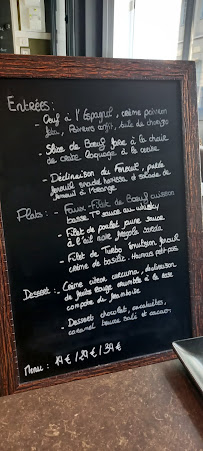 Entrées:
- Oeuf à l'Espagnol, crème poivron
feta, Poivrons confit, tuile de chorizo
- Slice de Boeuf fumé à la
de cerise laquage à la cerise
- Déclinaison du Fenouil, purée
fenouil snacké harissa & salade de
fenouil à l'orange
Plats: - Faux-Filet de Boeuf cuisson
basse T° sauce au whisky
- Filet de poulet jaune sauce
à l'ail noir fregola sarda
- Filet de Turbo émulsion fenouil
crème de basilic. Houmous petit-pois
Dessert: - Crème citron curcuma, déclinaison
de fruits rouge crumble à la rose
compotée de framboise
- Dessert chocolat, cacahuètes,
caramel beurre salé et cacao.
Menu: € / 29 € / 34 €